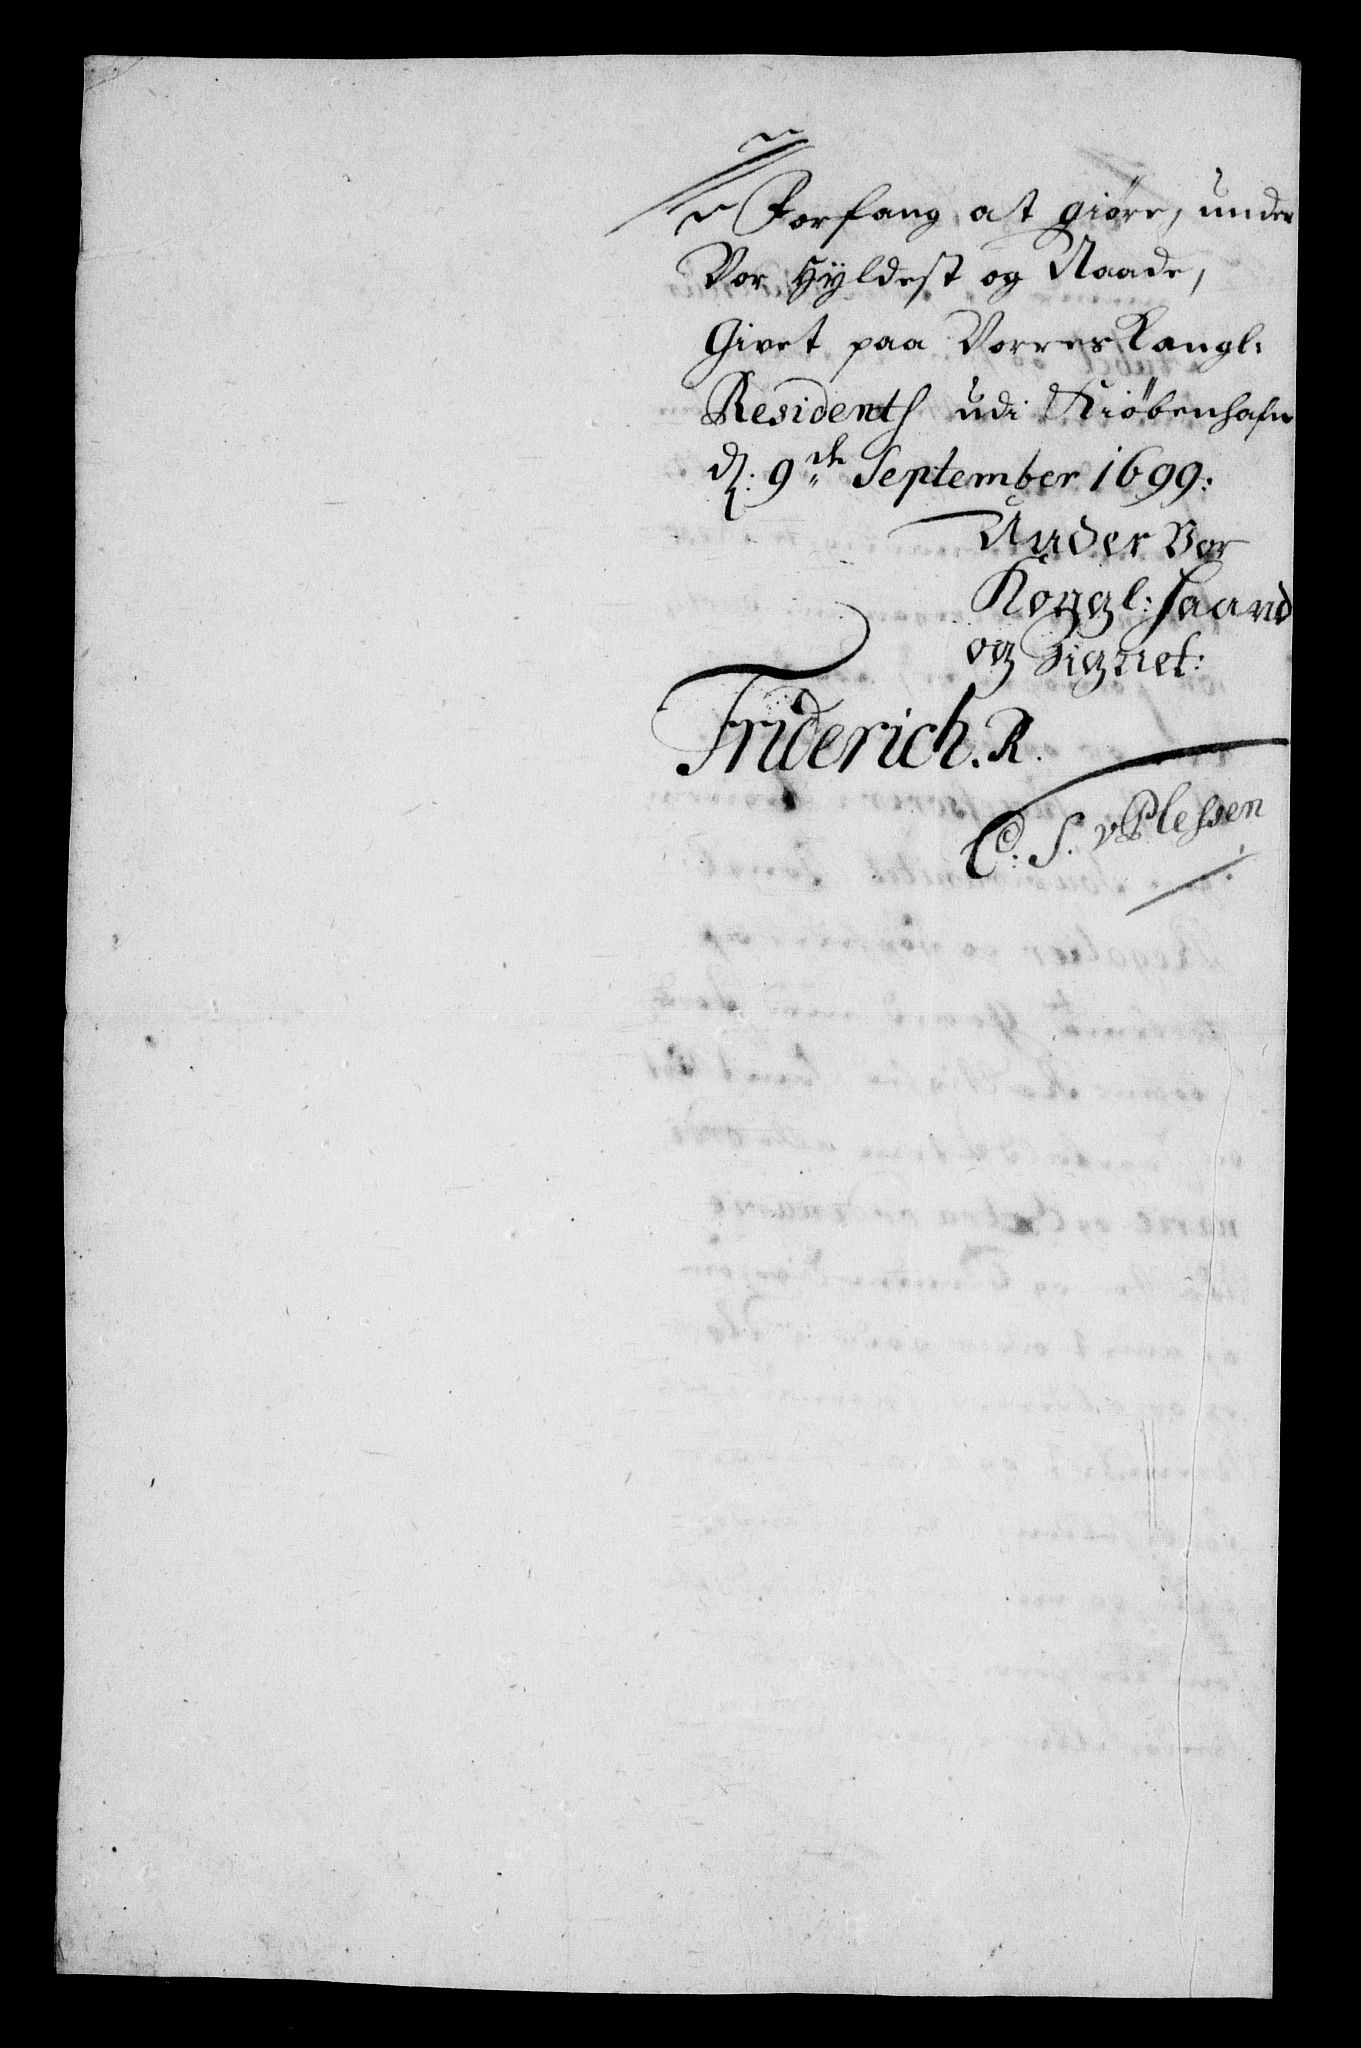 Forfang at giöre, under
Vor Hyldest og Naade,
Givet paa Vorres Kongl:
Residents udi Kiöbenhafn
d: 9de September 1699:
Under Vor
Kongl: Haand
og Signet:
Friderich. R.
C: S. v Plessen